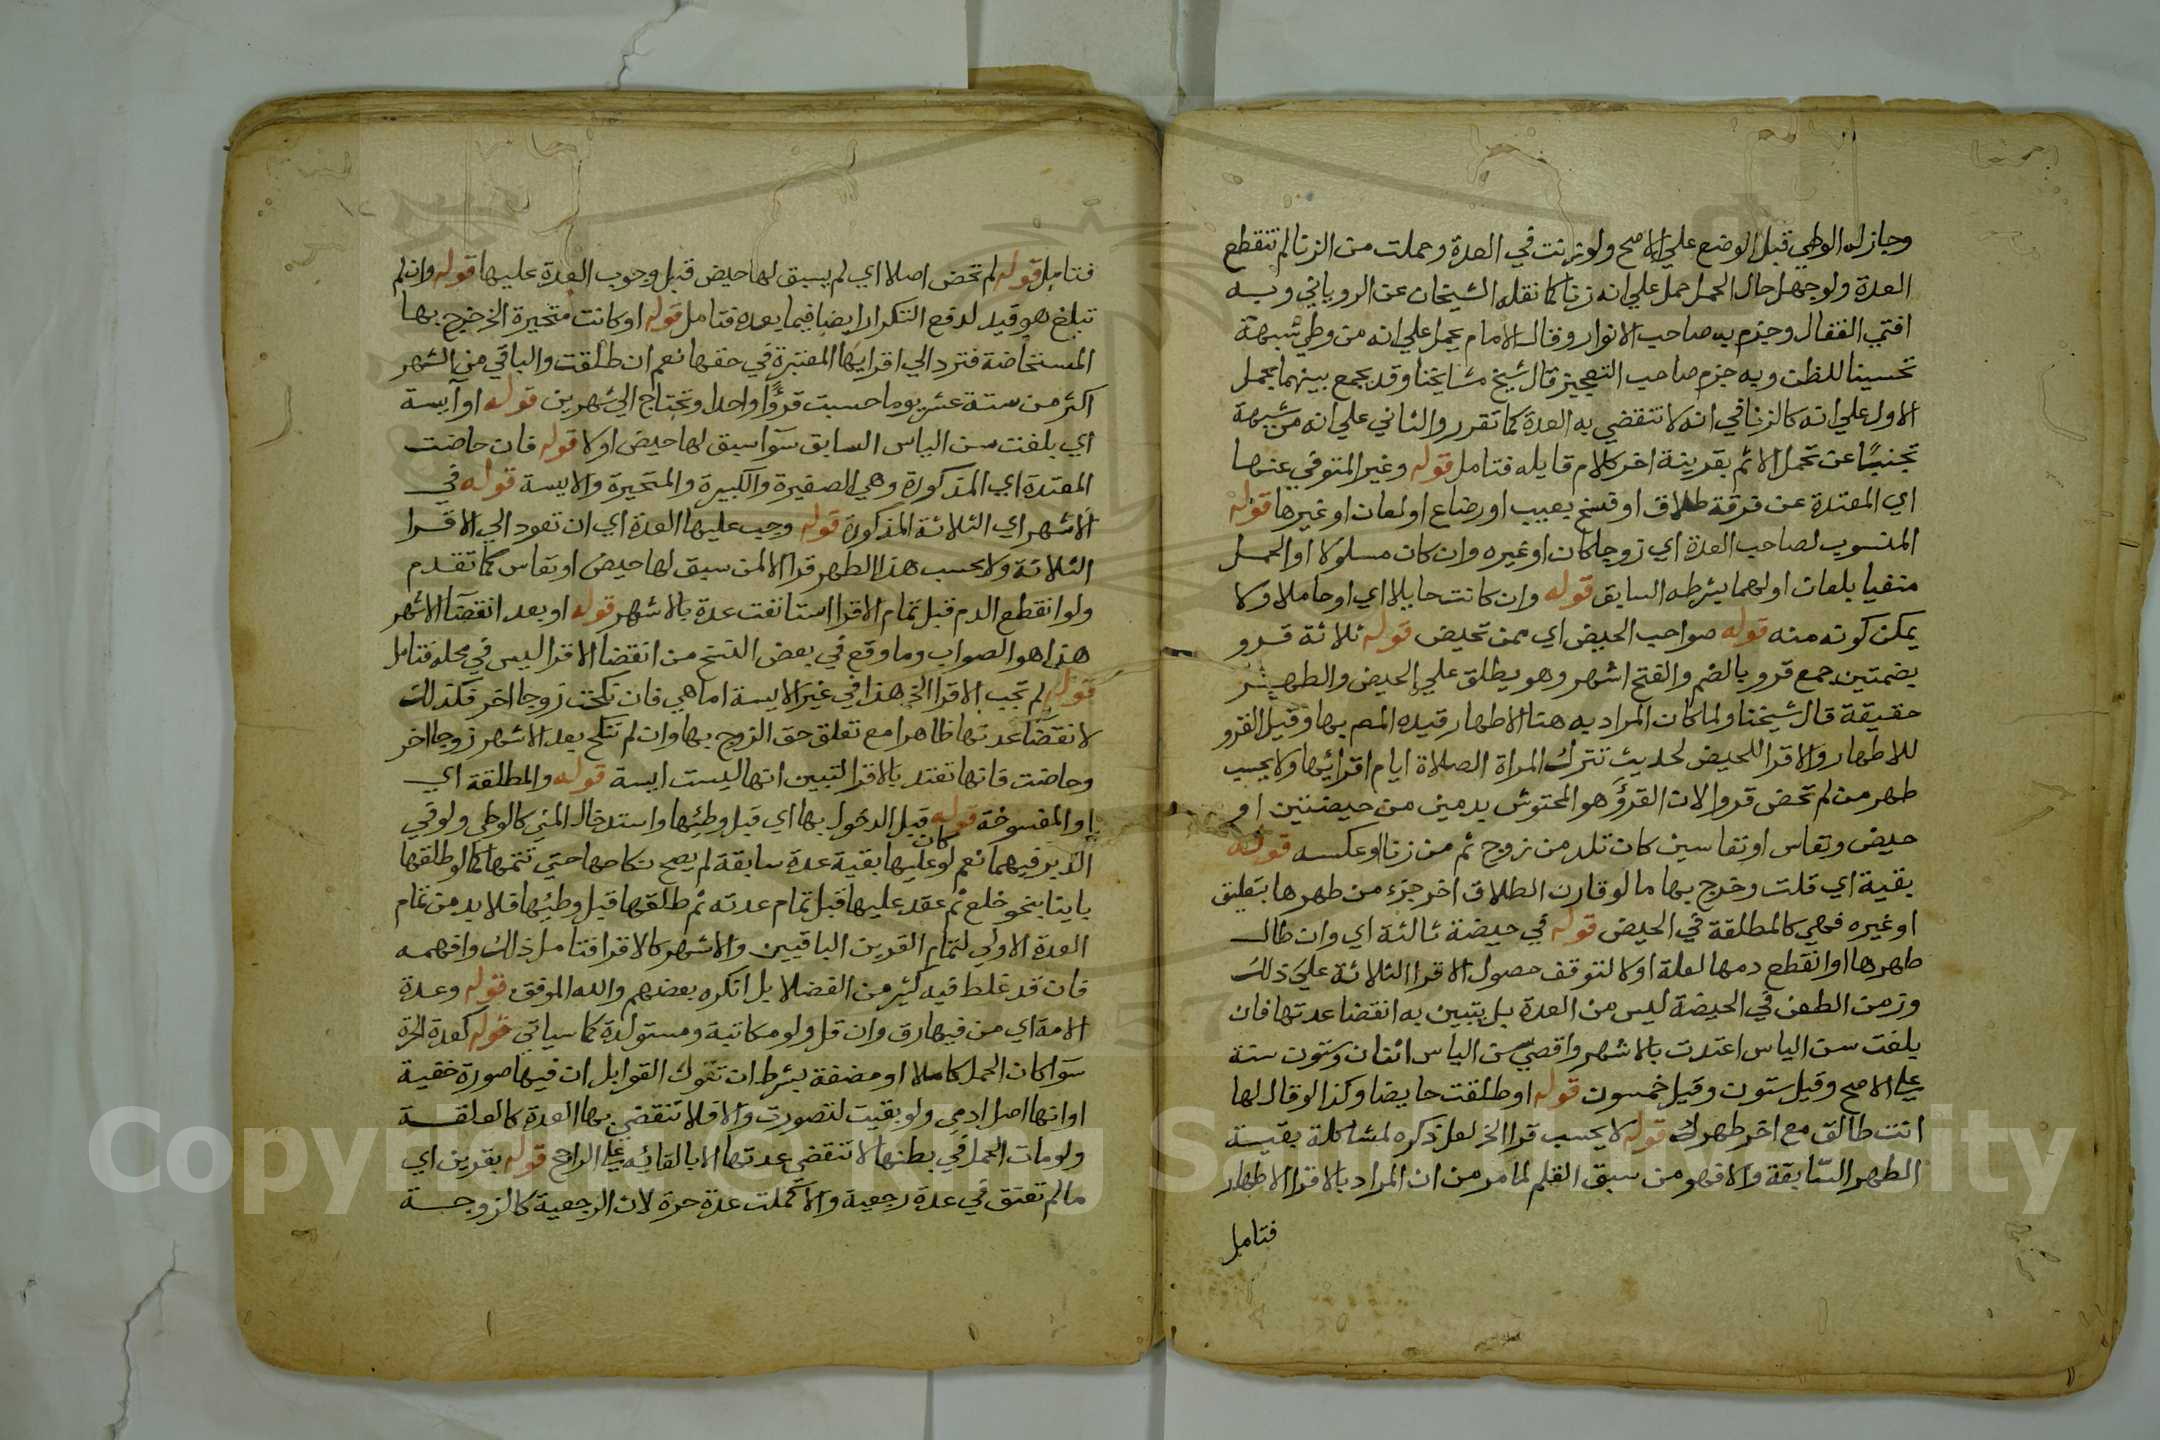 وجاز له الوطي قبل الوضع علي الاصح ولو زنت في العدة وحملت من الزنا لم تنقطع
العدة ولو جهل حال الحمل حمل علي انه زنا كما نقله الشيخان عن الروياني وبه
افتي القفال وجزم به صاحب الانوار وقال الامام يحمل علي انه من وطي شبهة
تحسينا للظن وبه جزم صاحب التعجيز قال شيخ مشايخنا وقد يجمع بينهما بحمل
الاول علي انه كالزنا في انه لا تنقضي به العدة كما تقرر والثاني علي انه من شبهة
تجنبًا عن تحمل الاثم بقرينة اخر كلام قايله فتامل قوله وغير المتوفي عنها
اي المعتدة عن فرقة طلاق او فسخ بعيب او رضاع او لعان او غيرها قوله
المنسوب لصاحب العدة اي زوجا كان او غيره وان كان مسلولا او الحمل
منفيا بلعان اولهما بشرطه السابق قوله وان كانت حايلا اي او حاملا ولا
يمكن كونه منه قوله صواحب الحيض اي ممن تحيض قوله ثلاثة قرو
بضمتين جمع قرو بالضم والفتح اشهر وهو يطلق علي الحيض والطهر
حقيقة قال شيخنا ولما كان المراد به هنا الاطهار قيده المص بها وقيل القرو
للاطهار والاقرا للحيض لحديث تترك المراة الصلاة ايام اقرائها ولا يحسب
طهر من لم تحض قروا لان القرؤ هو المحتوش بدمين من حيضتين او
حيض ونفاس او نفاسين كان تلد من زوج ثم من زنا او عكسه قوله
بقية اي قلت وخرج بها ما لو قارن الطلاق اخر جزء من طهرها بتعليق
او غيره فهي كالمطلقة في الحيض قوله في حيضة ثالثة اي وان طال
طهرها او انقطع دمها لعلة اولا لتوقف حصول الاقرا الثلاثة علي ذلك
وزمن الطعن في الحيضة ليس من العدة بل يتبين به انقضا عدتها فان
بلغت سن الياس اعتدت بالاشهر واقصي سن الياس اثنان وستون سنة
علي الاصح وقيل ستون وقيل خمسون قوله او طلقت حايضا وكذا لو قال لها
انت طالق مع اخر طهرك قوله لا يحسب قرا الخ لعل ذكره لمشاكلة بقية
الطهر السابقة والا فهو من سبق القلم لما مر من ان المراد بالاقرا الاطهار
فتامل
فتامل قوله لم تحض اصلا اي لم يسبق لها حيض قبل وجوب العدة عليها قوله وان لم
تبلغ هو قيد لدفع التكرار ايضا فيما بعده فتامل قوله او كانت متحيرة الخ خرج بها
المستحاضة فترد الي اقرايها المعتبرة في حقها نعم ان طلقت والباقي من الشهر
اكثر من ستة عشر يوما حسبت قرؤًا واحدا وتحتاج الي شهرين قوله او آيسة
اي بلغت سن الياس السابق سوآ سبق لها حيض اولا قوله فان حاضت
المعتدة اي المذكورة وهي الصغيرة والكبيرة والمتحيرة والايسة قوله في
الاشهر اي الثلاثة المذكورة قوله وجب عليها العدة اي ان تعود الي الاقرا
الثلاثة ولا يحسب هذا الطهر قرا الا لمن سبق لها حيض او نفاس كما تقدم
ولو انقطع الدم قبل تمام الاقرا استانفت عدة بالاشهر قوله او بعد انقضآ الاشهر
هذا هو الصواب وما وقع في بعض النسخ من انقضا الاقرا ليس في محله فتامل
قوله لم تجب الاقرا الخ هذا في غير الايسة اما هي فان نكحت زوجا اخر فكذلك
لانقضآ عدتها ظاهرا مع تعلق حق الزوج بها وان لم تنكح بعد الاشهر زوجا اخر
وحاضت فانها تعتد بالاقرا لتبين انها ليست ايسة قوله والمطلقة اي
او المفسوخة قوله قبل الدخول بها اي قبل وطئها واستدخال المني كالوطي ولو في
الدبر فيهما نعم لو كان عليها بقية عدة سابقة لم يصح نكاحها حتي تتمها كما لو طلقها
باينا بنحو خلع ثم عقد عليها قبل تمام عدته ثم طلقها قبل وطئها فلا بد من تمام
العدة الاولي لتمام القرين الباقيين والاشهر كالاقرا فتامل ذلك وافهمه
فان قد غلط فيه كثير من الفضلا بل انكره بعضهم والله الموفق قوله وعدة
الامة اي من فيها رق وان قل ولو مكاتبة ومستولدة كما سياتي قوله كعدة الحرة
سوآ كان الحمل كاملا او مضغة بشرط ان تقول القوابل ان فيها صورة خفية
او انها اصل ادمي ولو بقيت لتصورت والا فلا تنقضي بها العدة كالعلقة
ولو مات الحمل في بطنها لا تنقضي عدتها الا بالقائه علي الراجح قوله بقرين اي
ما لم تعتق في عدة رجعية والا كملت عدة حرة لان الرجعية كالزوجة
Copyright © King Saud University